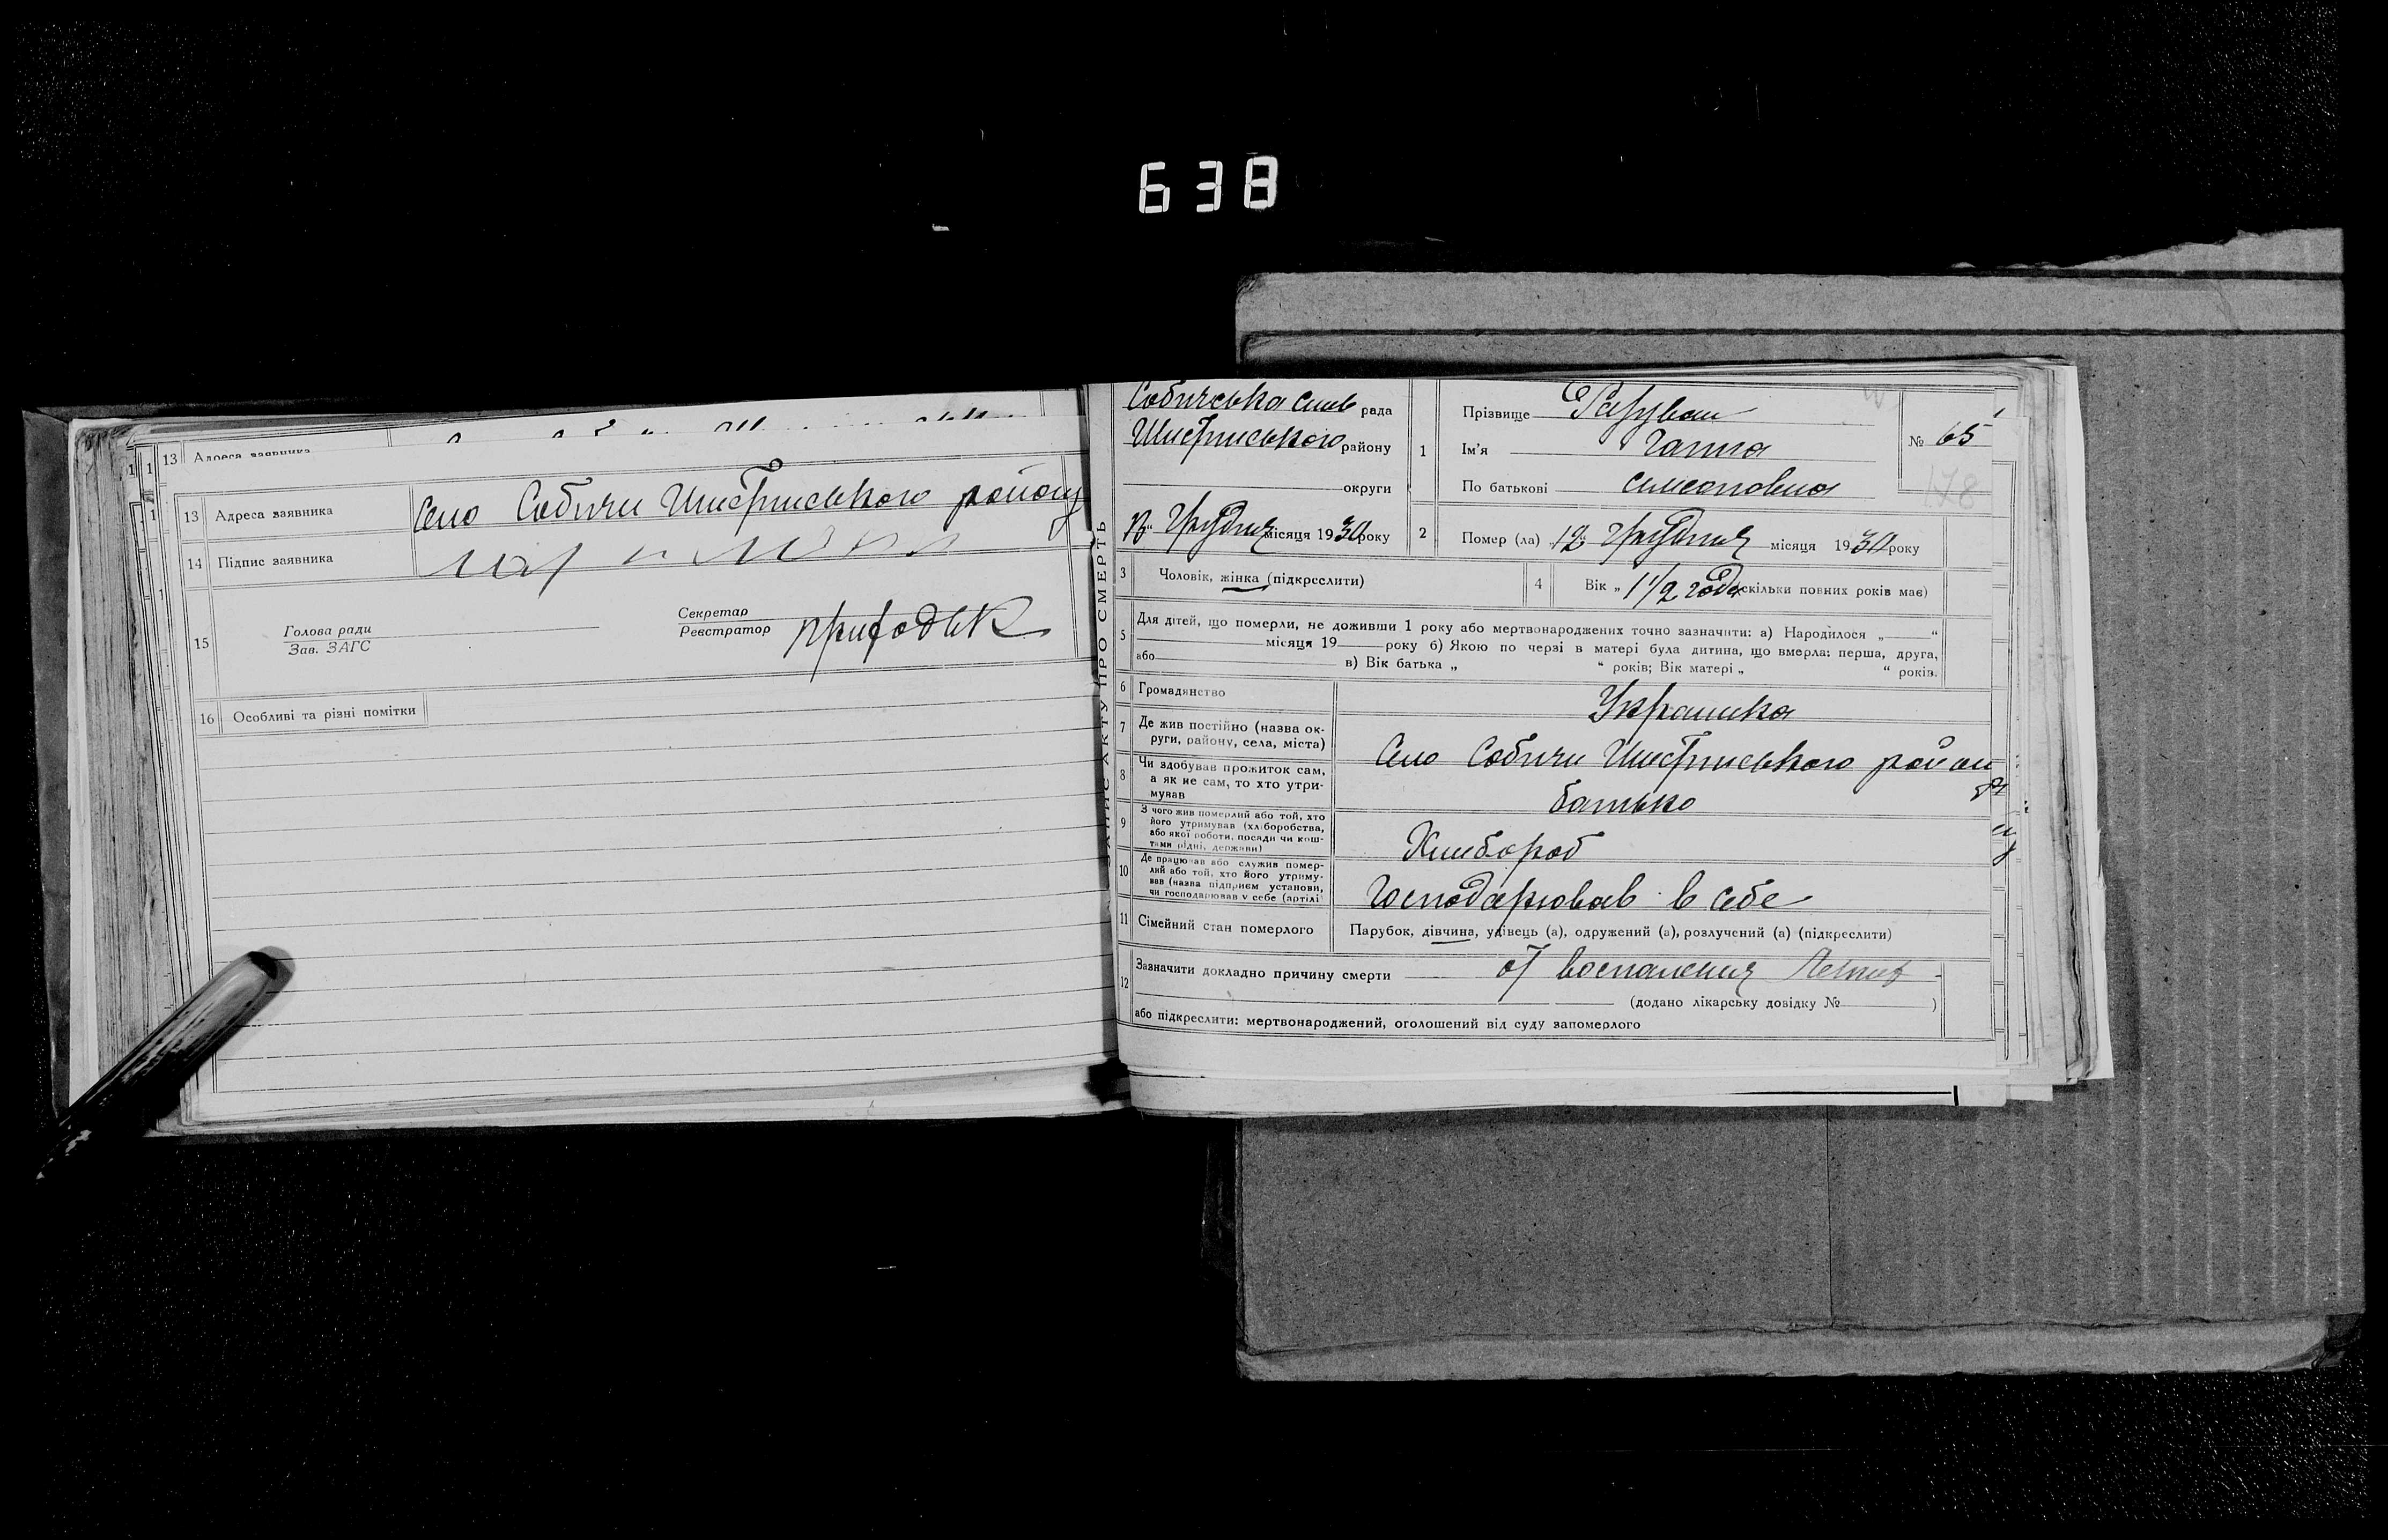 638
13 Адреса заявника
13 Адреса заявника Село Собичи Шистриського району
14 Підпис заявника
15 Голова ради
Зав. ЗАГС
Секретар
Реєстратор
16 Особливі та різні помітки
ЗАПИС АКТУ ПРО СМЕРТЬ
Собичська сільс рада
району
округи
13 Грудня місяця 1930 року
1 Прізвище
Ім'я Ганна
По батькові Симоновна
№ 65
178
2 Помер (ла) 12 Грудня місяця 1930 року
3 Чоловік, жінка (підкреслити)
4 Вік „ 1 1/2 года скільки повних років має)
5 Для дітей, що померли, не доживши 1 року або мертвонароджених точно зазначити: а) Народилося „ “
місяця 19 року б) Якою по черзі в матері була дитина, що вмерла: перша, друга,
або в) Вік батька „ “ років; Вік матері „ “ років.
6 Громадянство Українка
7 Де жив постійно (назва ок-
руги, району, села, міста) Село Собичи району
8 Чи здобував прожиток сам,
а як не сам, то хто утри-
мував батько
9 З чого жив померлий або той, хто
його утримував (хліборобства,
або якої роботи, посади чи кош-
тами рідні, держави) Хлибороб
10 Де працював або служив помер-
лий або той, хто його утриму-
вав (назва підприєм установи,
чи господарював у себе (артілі Господарював в себе
11 Сімейний стан померлого Парубок, дівчина, удівець (а), одружений (а), розлучений (а) (підкреслити)
12 Зазначити докладно причину смерти от воспаления легких
(додано лікарську довідку № )
або підкреслити: мертвонароджений, оголошений від суду запомерлого